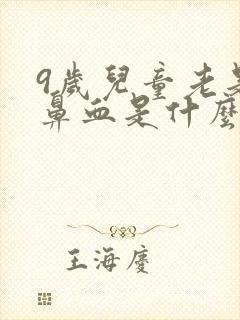 9歲兒童老是
鼻血是什麼
王海慶